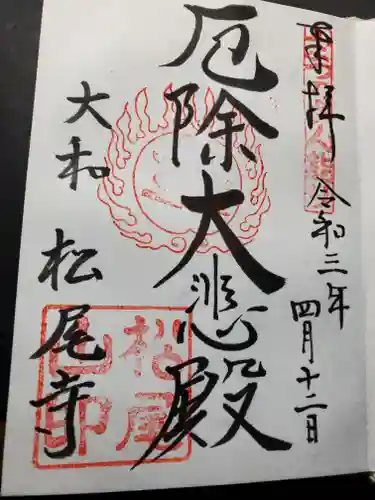 奉拝
令和三年
四月十二日
厄除大悲殿
大和
松尾寺
松尾
寺印